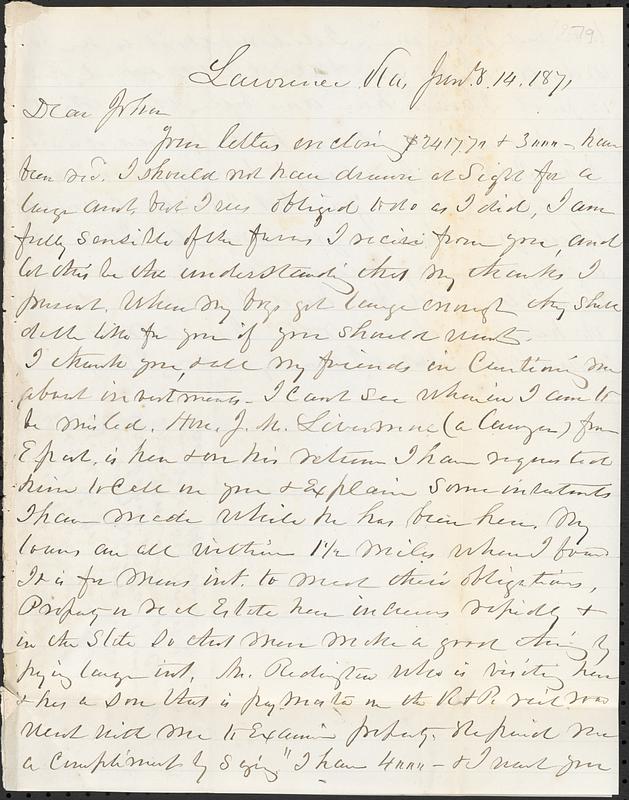 79
Lawrence Kas, Jany 14. 1871
Dear John
Your letters enclosing $24177 + 3000 - have
been recd. I should not have drawn at Sight for a
large amt, but I was obliged to do as I did, I am
fully sensible of the favors I receive from you, and
let this be the understanding that my thanks I
present. When my boys get large enough they shall
do the like for you if you should want.
I thank you & all my friends in Cautioning me
about investments - I cant see wherein I am to
be misled. Hon. J. M. Livermore (a Lawyer) from
Eport. is here & on his return I have requested
him to Call on you & Explain Some investments
I have made while he has been here. My
loans are all within 1 1/2 miles where I board
It is for mens int. to meet their obligations,
Property in real Estate here increases rapidly &
in the State So that men make a good thing by
paying large int, Mr. Redington who is visiting here
& has a Son that is paymaster on the R&R rail road
went with me to Examine property. & paid me
a compliment by saying "I have 4000 - & I want you